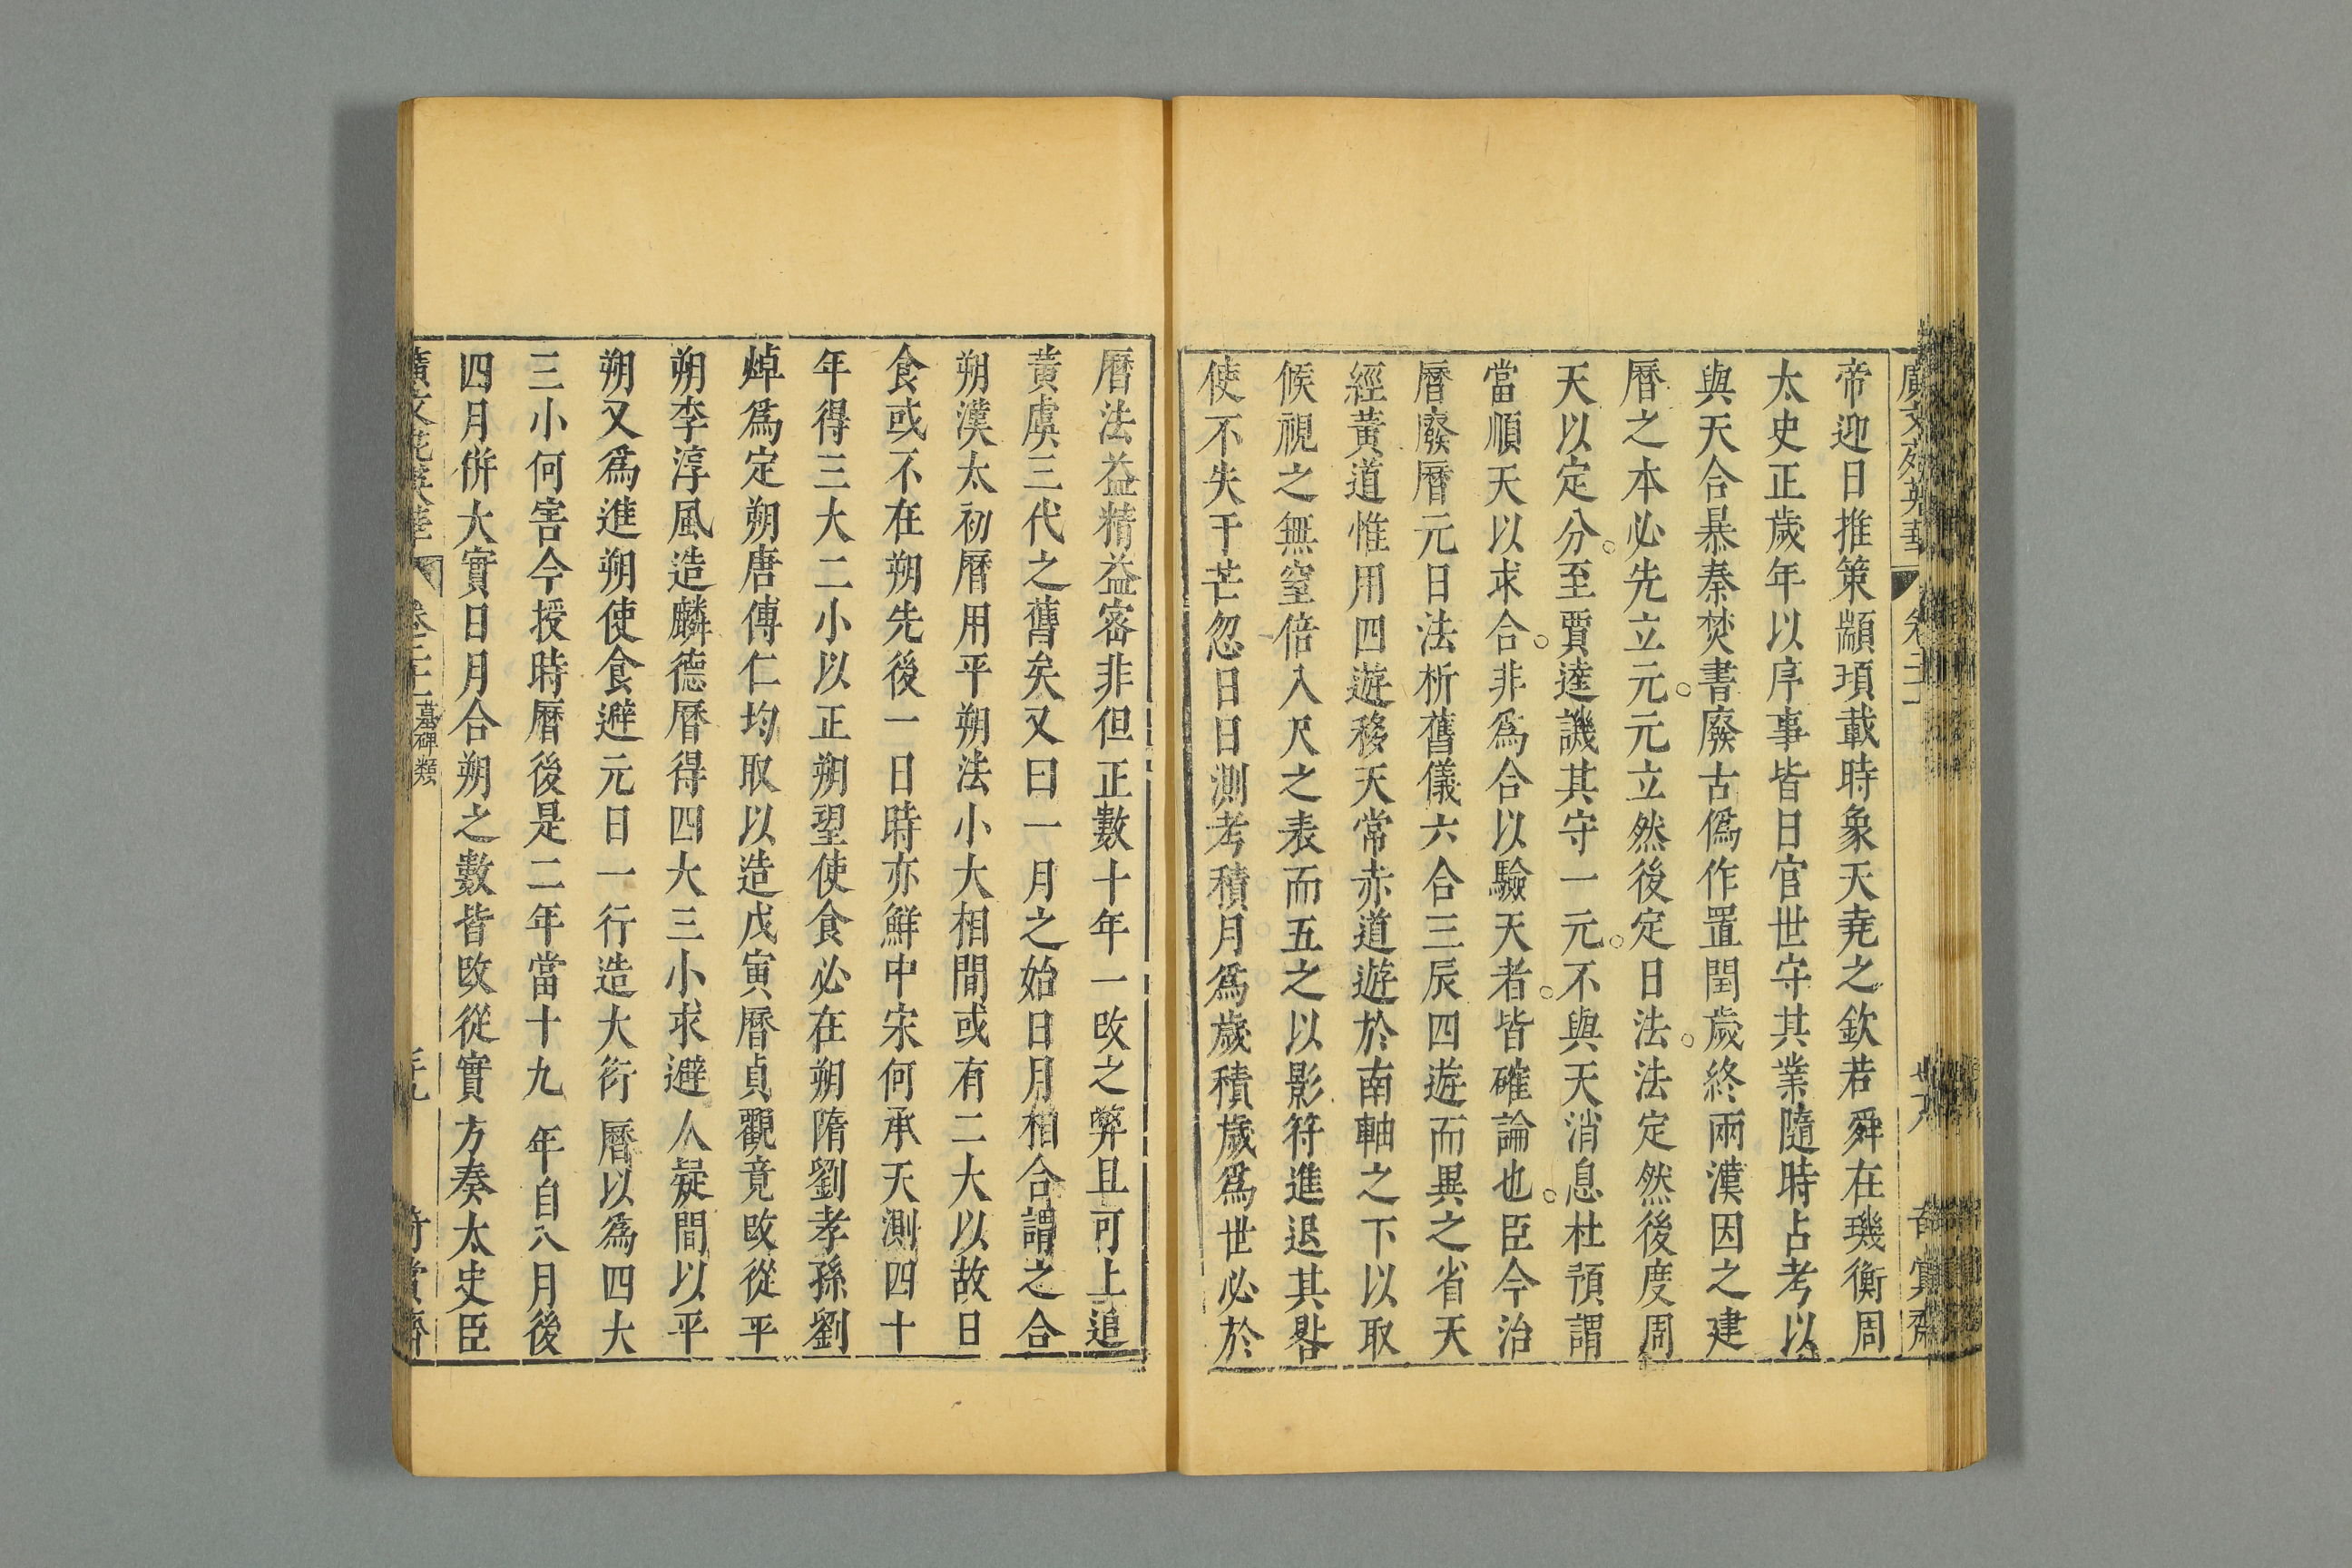 廣文苑英華
卷二十
帝迎日推策顓頊載時象天堯之欽若舜在璣衡周
太史正歲年以序事皆日官世守其業隨時占考以
與天合暴秦焚書廢古僞作置閏歲終兩漢因之建
曆之本必先立元元立然後定日法法定然後度周
天以定分至賈逵譏其守一元不與天消息杜預謂
當順天以求合非爲合以驗天者皆確論也臣今治
曆廢曆元日法析舊儀六合三辰四遊而異之省天
經黃道惟用四遊移天常赤道遊於南軸之下以取
候視之無窒倍八尺之表而五之以影符進退其晷
使不失于芒忽日日測考積月爲歲積歲爲世必於
曆法益精益密非但正數十年一改之弊且可上追
黃虞三代之舊矣又曰一月之始日月相合謂之合
朔漢太初曆用平朔法小大相間或有二大以故日
食或不在朔先後一日時亦鮮中宋何承天測四十
年得三大二小以正朔望使食必在朔隋劉孝孫劉
焯爲定朔唐傅仁均取以造戊寅曆貞觀竟改從平
朔李淳風造麟德曆得四大三小求避人疑間以平
朔又爲進朔使食避元日一行造大衍曆以爲四大
三小何害今授時曆後是二年當十九年自八月後
四月併大實日月合朔之數皆改從實方奏太史臣
廣文苑英華 卷二十 墓碑類